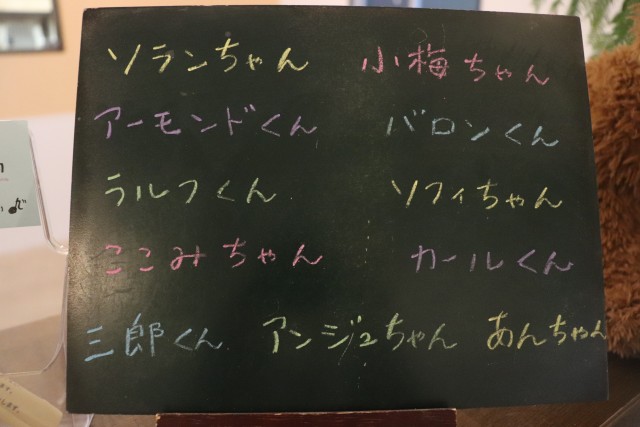 ソランちゃん 小梅ちゃん
アーモンドくん バロンくん
ラルフくん ソフィちゃん
ここみちゃん カールくん
三郎くん アンジュちゃん あんちゃん